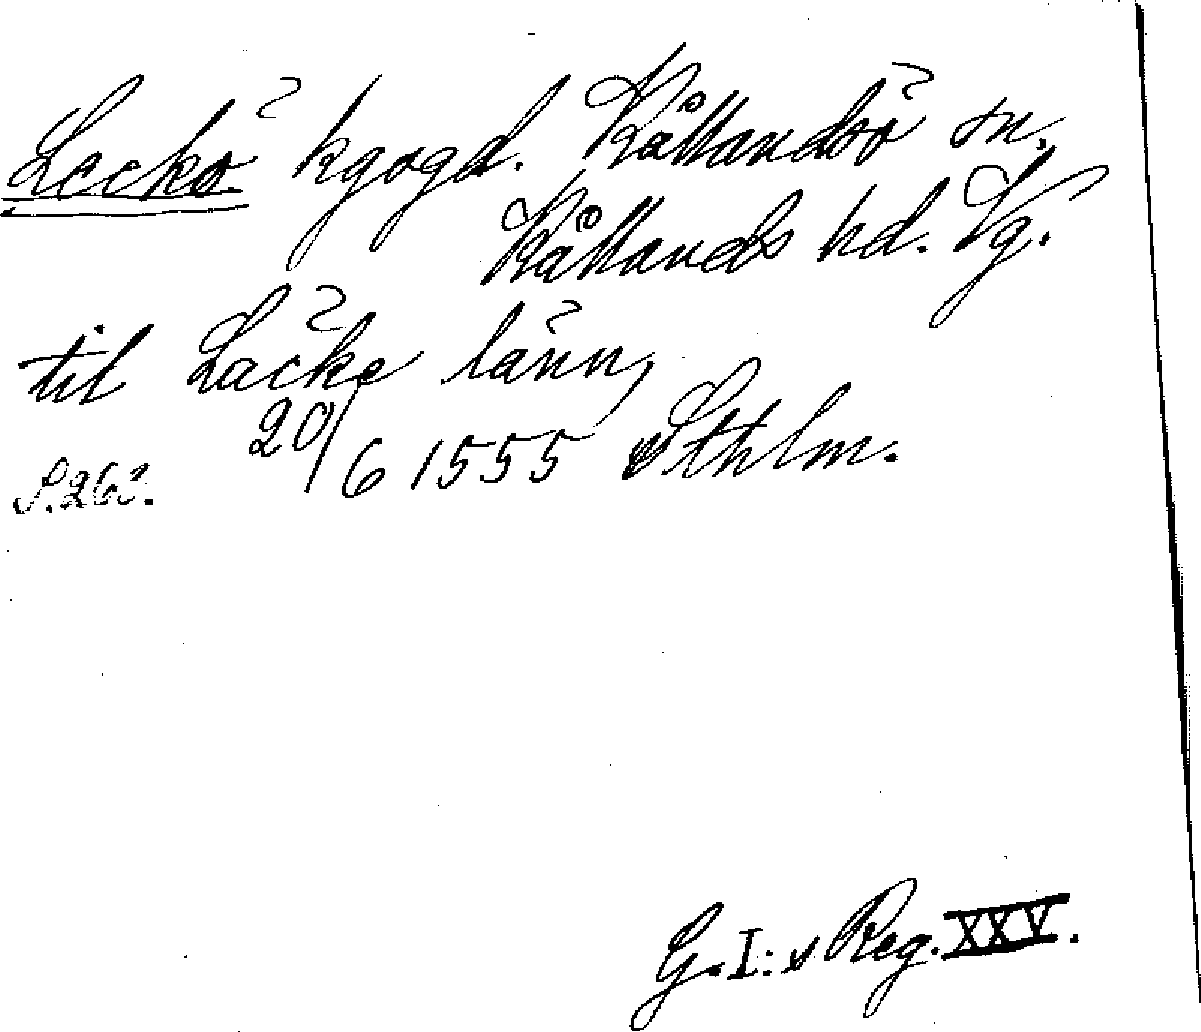 Leckö kgsgd. Kållandsö sn.
Kållands hd. Vg.
til Läcke länn,
20/6 1555 Sthlm.
S. 262.
G. I:s Reg. XXV.